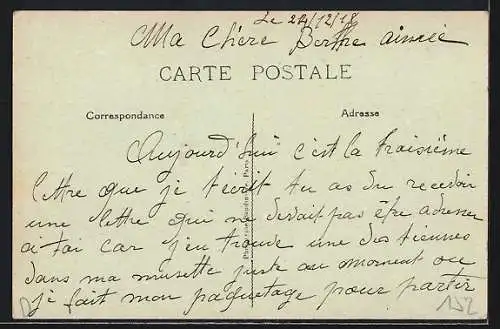 Le 24/12/18
Ma Chère Berthe aimée
CARTE POSTALE
Correspondance
Adresse
Aujourd'hui c'est la troisième
lettre que je t'écrit tu as du recevoir
une lettre qui ne devait pas être adresser
a toi car j'en trouve une des tiennes
dans ma musette juste au moment ou
je fait mon paquetage pour partir
152